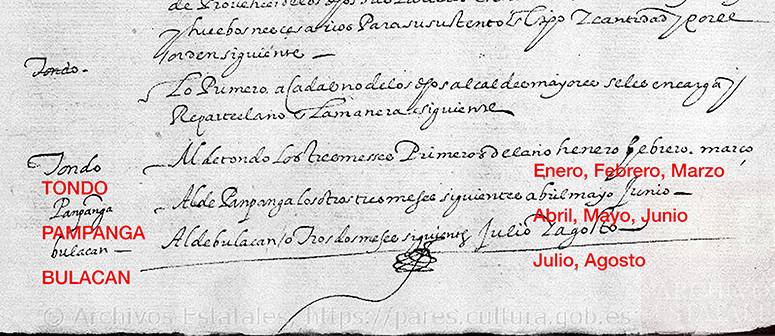 de Proueher de los
y huebos neçesarios Para su sustento y cantidad y por el
orden siguiente —
Tondo.
Lo Primero, a Cada Uno de los dhos alcaldes mayores se les encarga y
Reparte la manera siguiente
Tondo
Al de tondo Los tres meses Primeros del año henero febrero. março
TONDO
Enero, Febrero, Marzo
Panpanga
Al de Panpanga los otros tres meses siguientes abril mayo Junio —
PAMPANGA
Abril, Mayo, Junio
bulacan —
Al de bulacan / o Tros dos meses siguientes Julio Y agosto —
BULACAN
Julio, Agosto
© Archivos Estatales, https://pares.cultura.gob.es